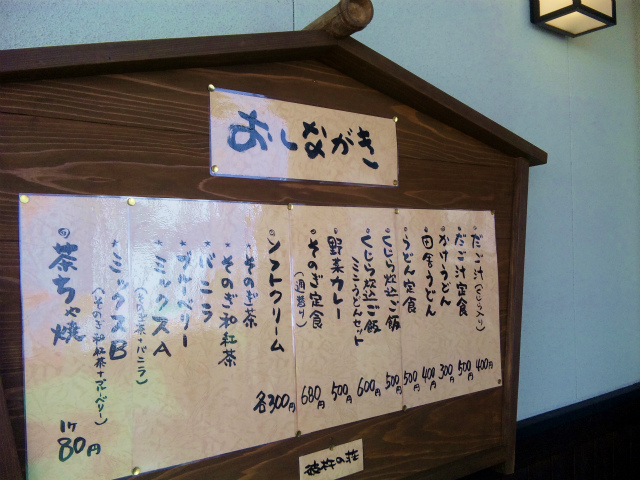 おしながき
だご汁(くじら入り) 400円
だご汁定食 500円
かけうどん 300円
田舎うどん 400円
うどん定食 500円
くじら炊込ご飯 500円
くじら炊込ご飯
ミニうどんセット 600円
野菜カレー 500円
そのぎ定食
(週替り) 680円
ソフトクリーム 各300円
そのぎ茶
そのぎ和紅茶
バニラ
ブルーベリー
ミックスA
(そのぎ茶+バニラ)
ミックスB
(そのぎ和紅茶+ブルーベリー)
茶ちゃ焼 1ケ80円
彼杵の荘